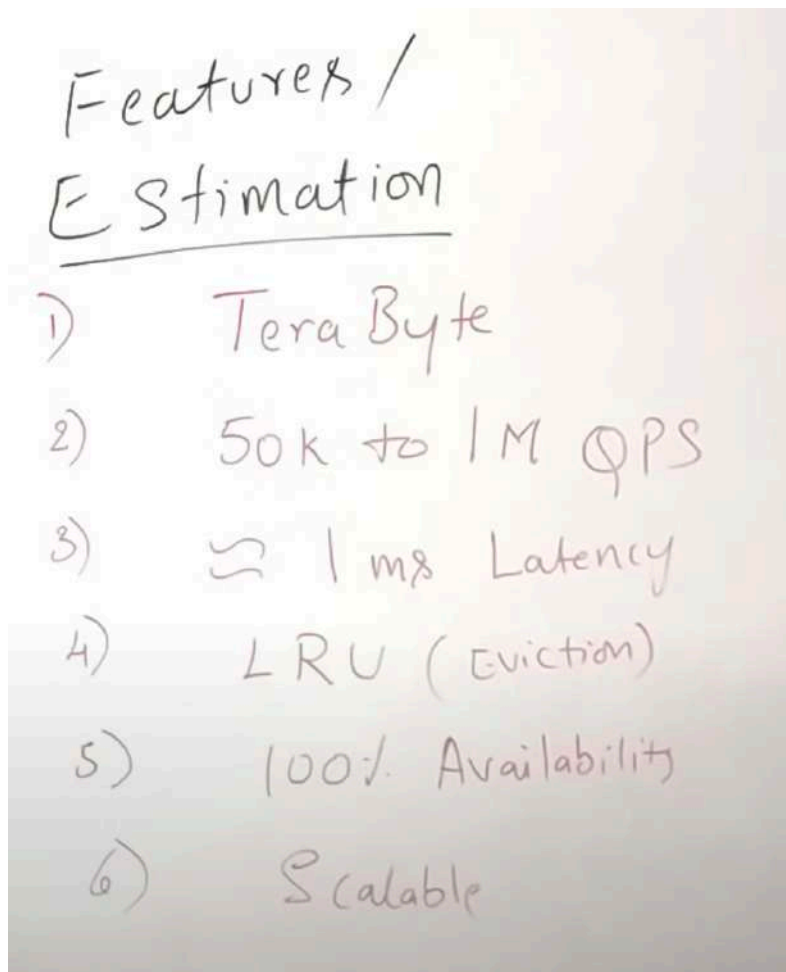 Features/
Estimation
1) Tera Byte
2) 50K to 1M QPS
3) ≈ 1 ms Latency
4) LRU (Eviction)
5) 100% Availability
6) Scalable